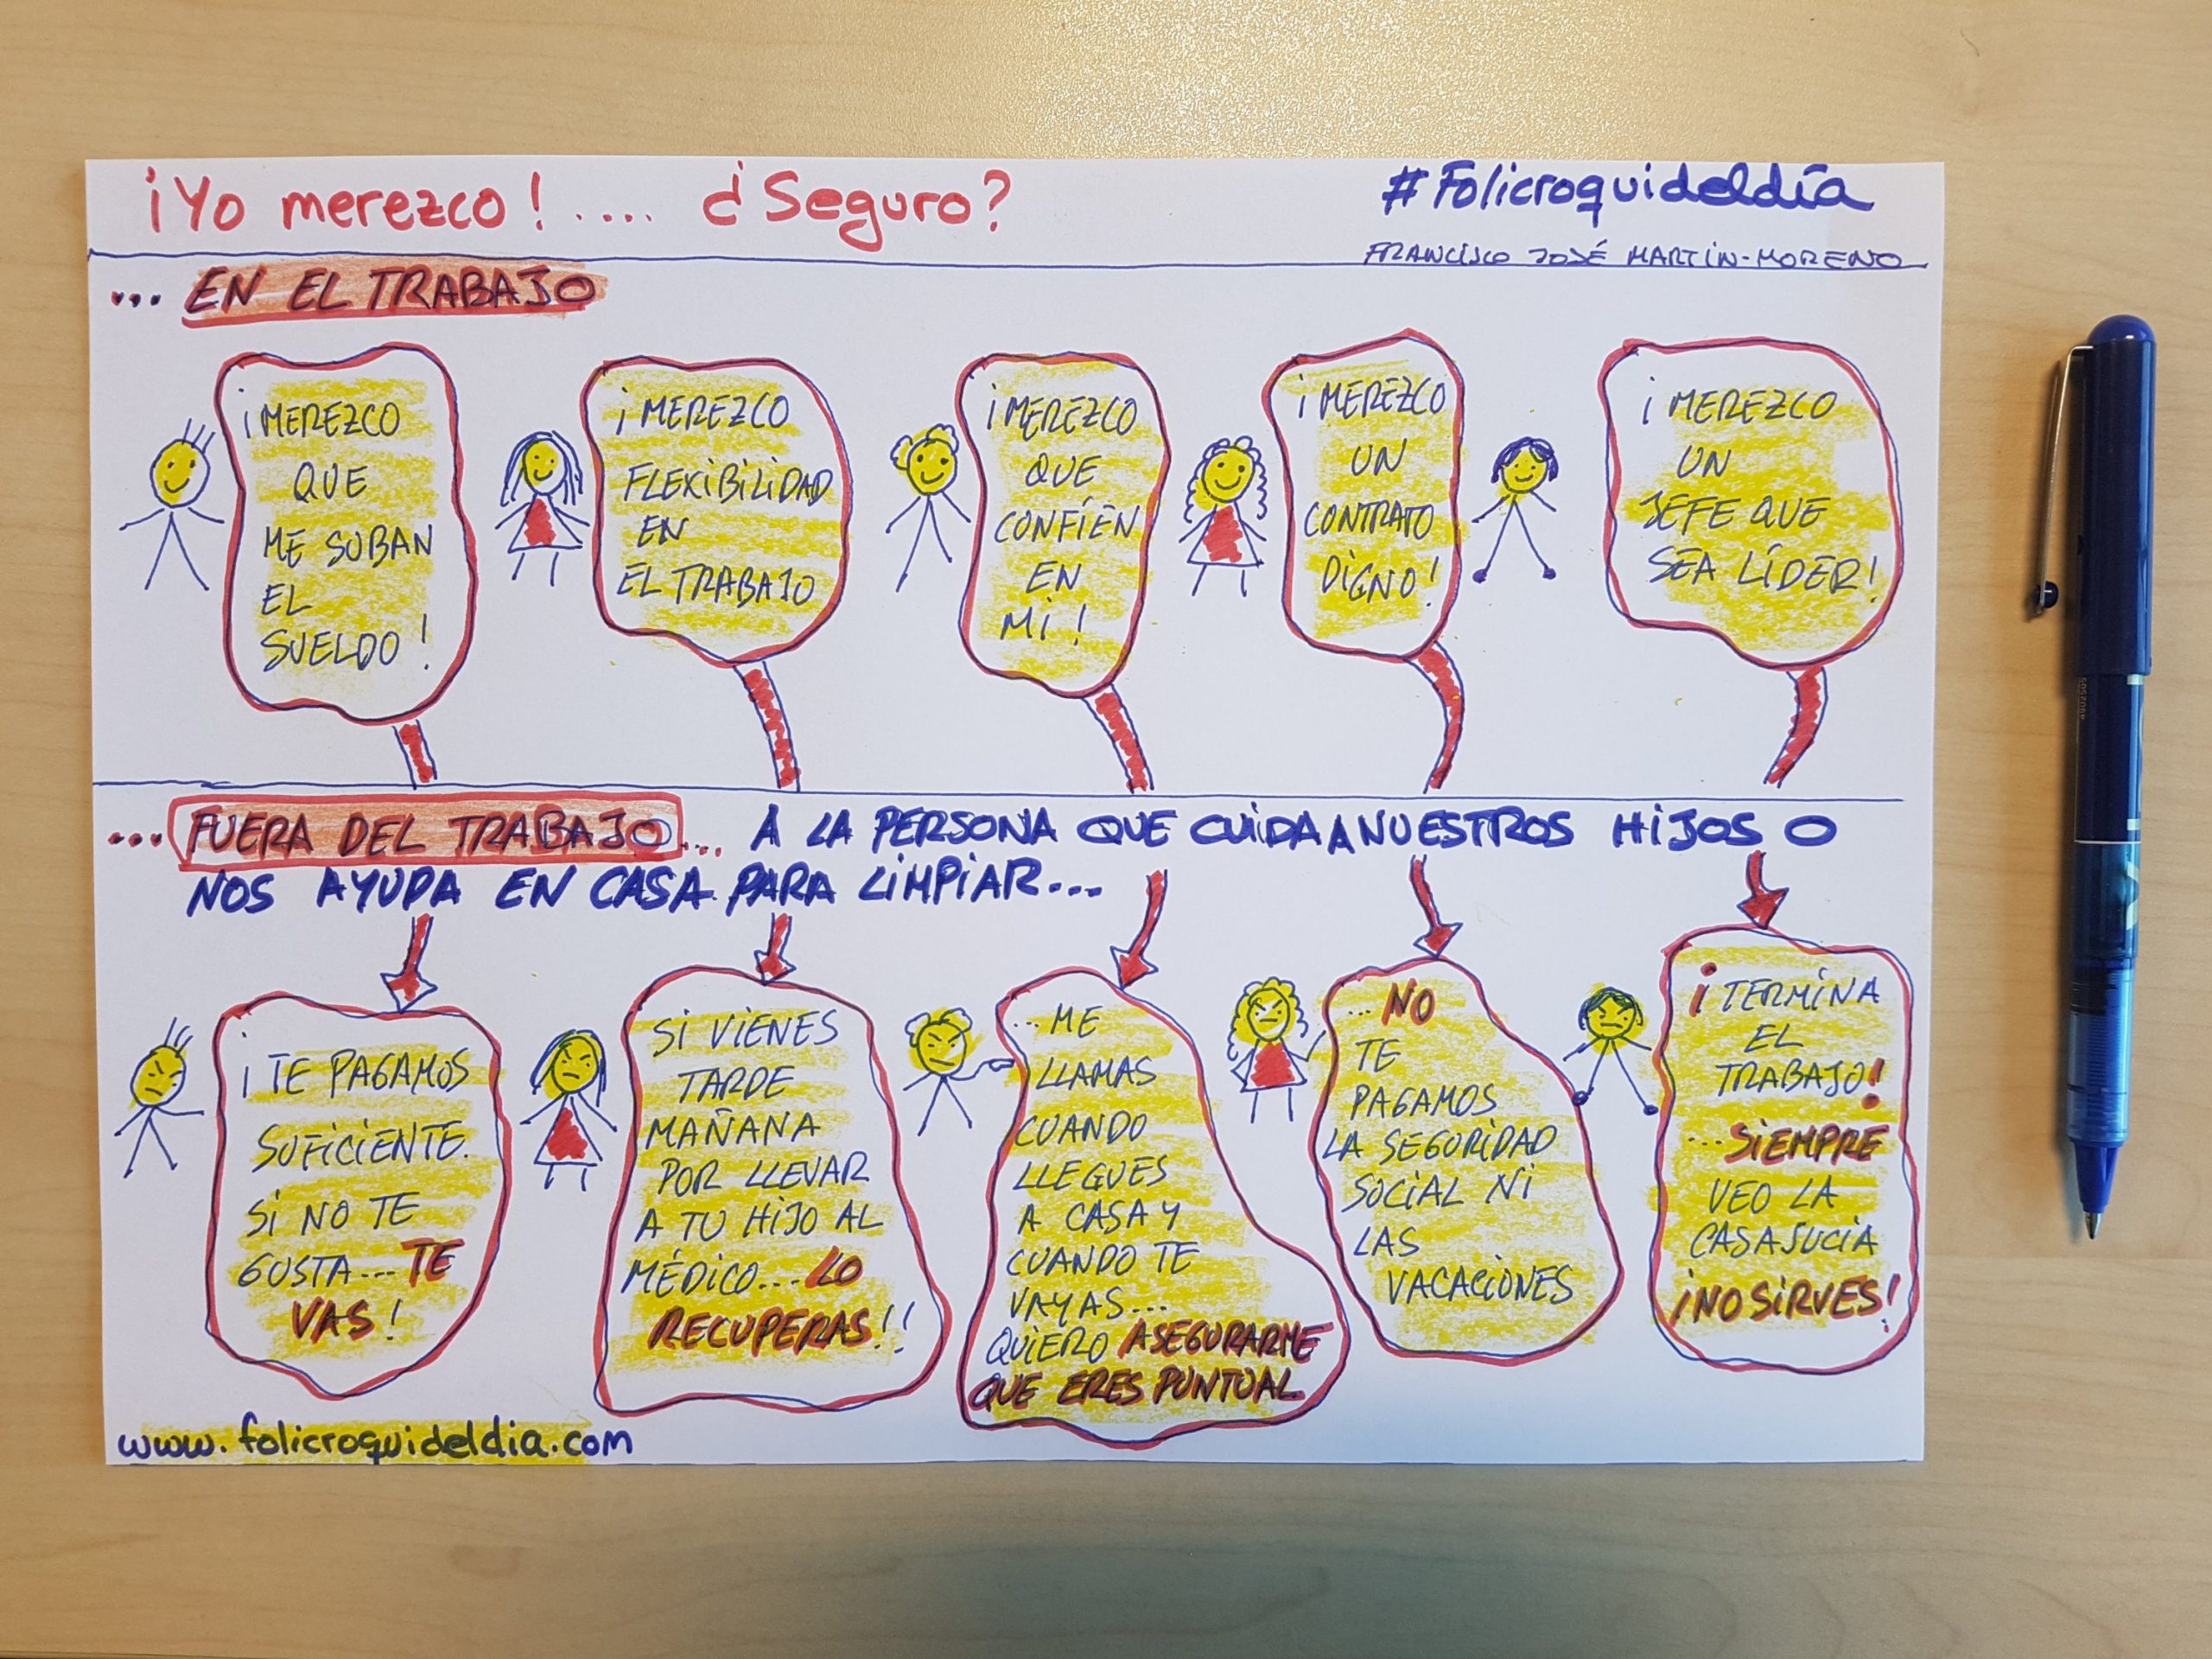 ¡Yo merezco! .... ¿Seguro?
#Folicroquideldía
FRANCISCO JOSÉ MARTÍN-MORENO
... EN EL TRABAJO
¡MEREZCO
QUE
ME SUBAN
EL
SUELDO!
¡MEREZCO
FLEXIBILIDAD
EN
EL TRABAJO
¡MEREZCO
QUE
CONFÍEN
EN
MI!
¡MEREZCO
UN
CONTRATO
DIGNO!
¡MEREZCO
UN
JEFE QUE
SEA LÍDER!
... FUERA DEL TRABAJO... A LA PERSONA QUE CUIDA A NUESTROS HIJOS O
NOS AYUDA EN CASA PARA LIMPIAR...
¡TE PAGAMOS
SUFICIENTE.
SI NO TE
GUSTA... TE
VAS!
SI VIENES
TARDE
MAÑANA
POR LLEVAR
A TU HIJO AL
MÉDICO... LO
RECUPERAS!!
... ME
LLAMAS
CUANDO
LLEGUES
A CASA Y
CUANDO TE
VAYAS...
QUIERO ASEGURARME
QUE ERES PUNTUAL
... NO
TE
PAGAMOS
LA SEGURIDAD
SOCIAL NI
LAS
VACACIONES
¡TERMINA
EL
TRABAJO!
... SIEMPRE
VEO LA
CASA SUCIA
¡NO SIRVES!
www.folicroquideldia.com